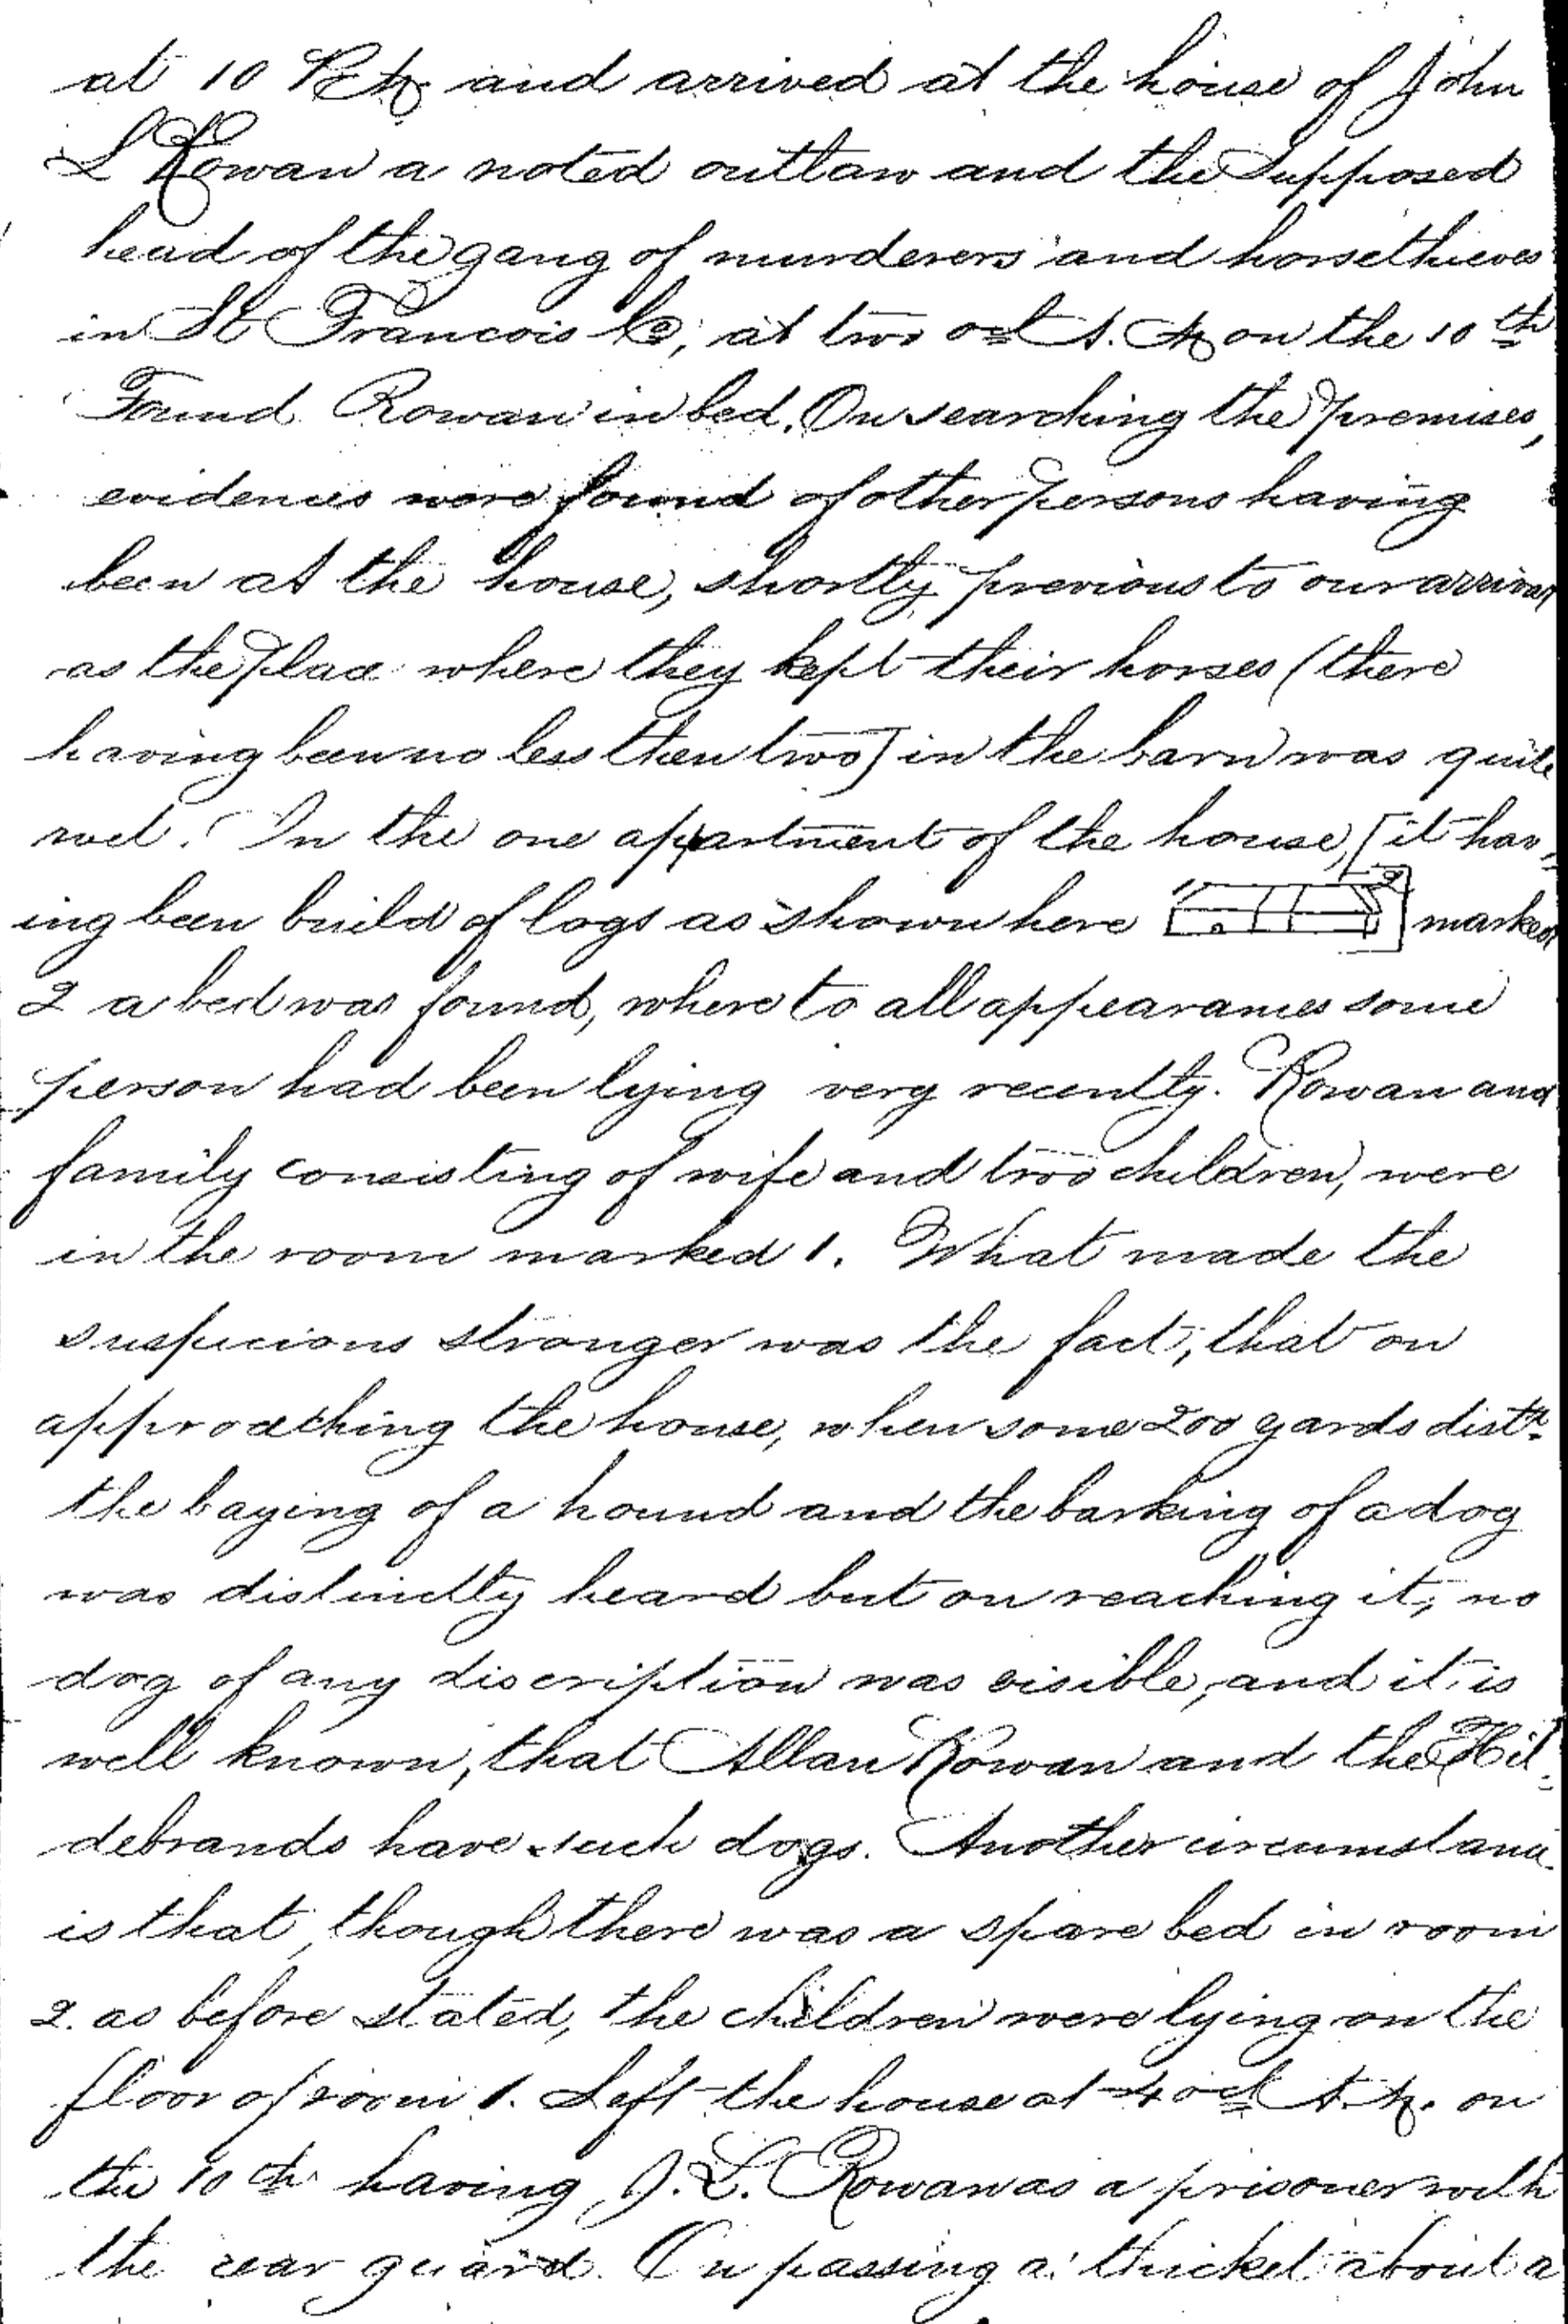 at 10 P.M. and arrived at the house of John
L Rowan a noted outlaw and the Supposed
head of the gang of murderers and horsethieves
in St Francois Co, at two ocl A.M on the 10th
Found Rowan in bed. On searching the premises,
evidences were found of other persons having
been at the house, shortly previous to our arrival
as the place where they kept their horses (there
having been no less then two] in the barn was quite
wet. In the one appartment of the house, [it hav-
ing been build of logs as shown here ] marked
2 a bed was found, where to all appearances some
person had been lying very recently. Rowan and
family consisting of wife and two children, were
in the room marked 1. What made the
suspicions stronger was the fact, that on
approaching the house, when some 200 yards distt
the baying of a hound and the barking of a dog
was distinctly heard but on reaching it, no
dog of any discription was visible, and it is
well known, that Allan Rowan and the Hil-
debrands have such dogs. Another circumstance
is that, though there was a spare bed in room
2. as before stated, the children were lying on the
floor of room 1. Left the house at 4 ocl A.M. on
the 10th having J. L. Rowan as a prisoner with
the rear guard. On passing a thicket about a